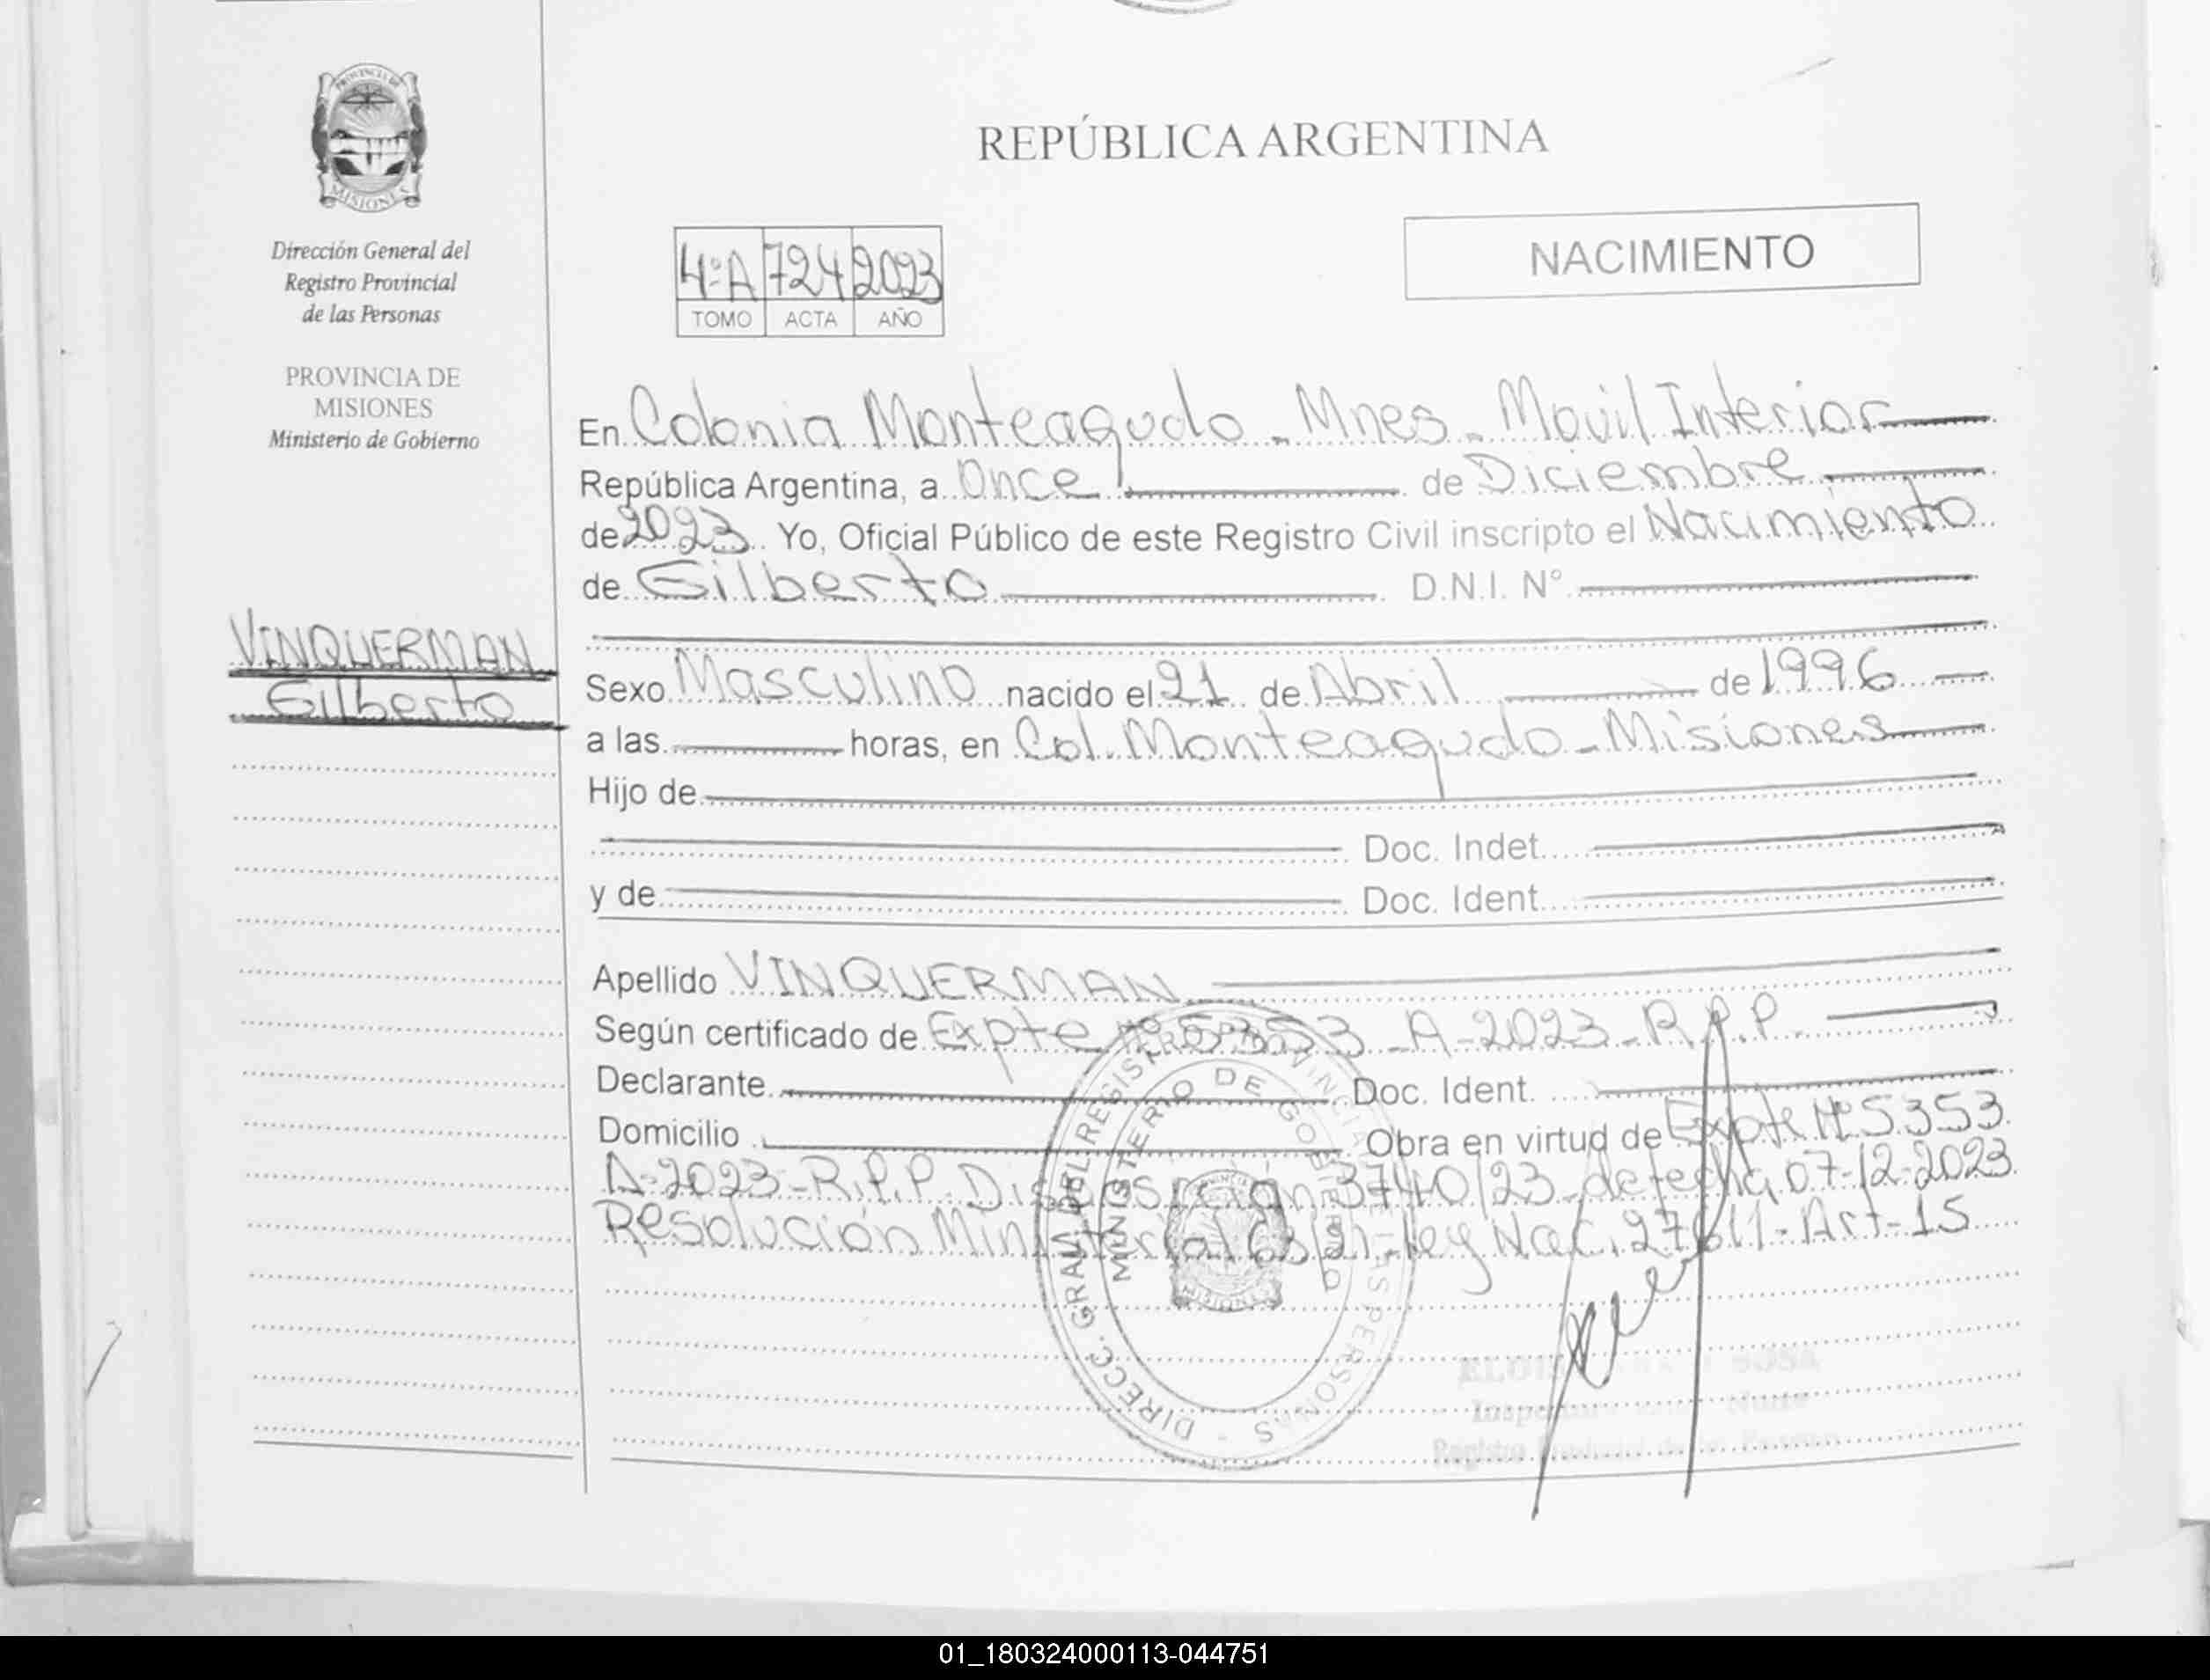 PROVINCIA DE
MISIONES
Dirección General del
Registro Provincial
de las Personas
PROVINCIA DE
MISIONES
Ministerio de Gobierno
VINQUERMAN
Gilberto
REPÚBLICA ARGENTINA
NACIMIENTO
4ºA 724 2023
TOMO ACTA AÑO
En Colonia Monteagudo - Mnes - Movil Interior
República Argentina, a Once de Diciembre
de 2023 Yo, Oficial Público de este Registro Civil inscripto el Nacimiento
de Gilberto D.N.I. N°
Sexo Masculino nacido el 21 de Abril de 1996
a las horas, en Col. Monteagudo - Misiones
Hijo de
Doc. Indet.
y de Doc. Ident.
Apellido VINQUERMAN
Según certificado de Expte Nº 5353 - A - 2023 - R.P.P.
Declarante Doc. Ident.
Domicilio Obra en virtud de Expte Nº 5353
A-2023-R.P.P. Disposición 3740/23 de fecha 07-12-2023
Resolución Ministerial 63/21 - ley Nac. 27611 - Art-15
DIRECC. GRAL. DEL REGISTRO PROVINCIAL DE LAS PERSONAS
MINISTERIO DE GOBIERNO
MISIONES
SOSA
Norte
Registro Provincial de las Personas
01_180324000113-044751